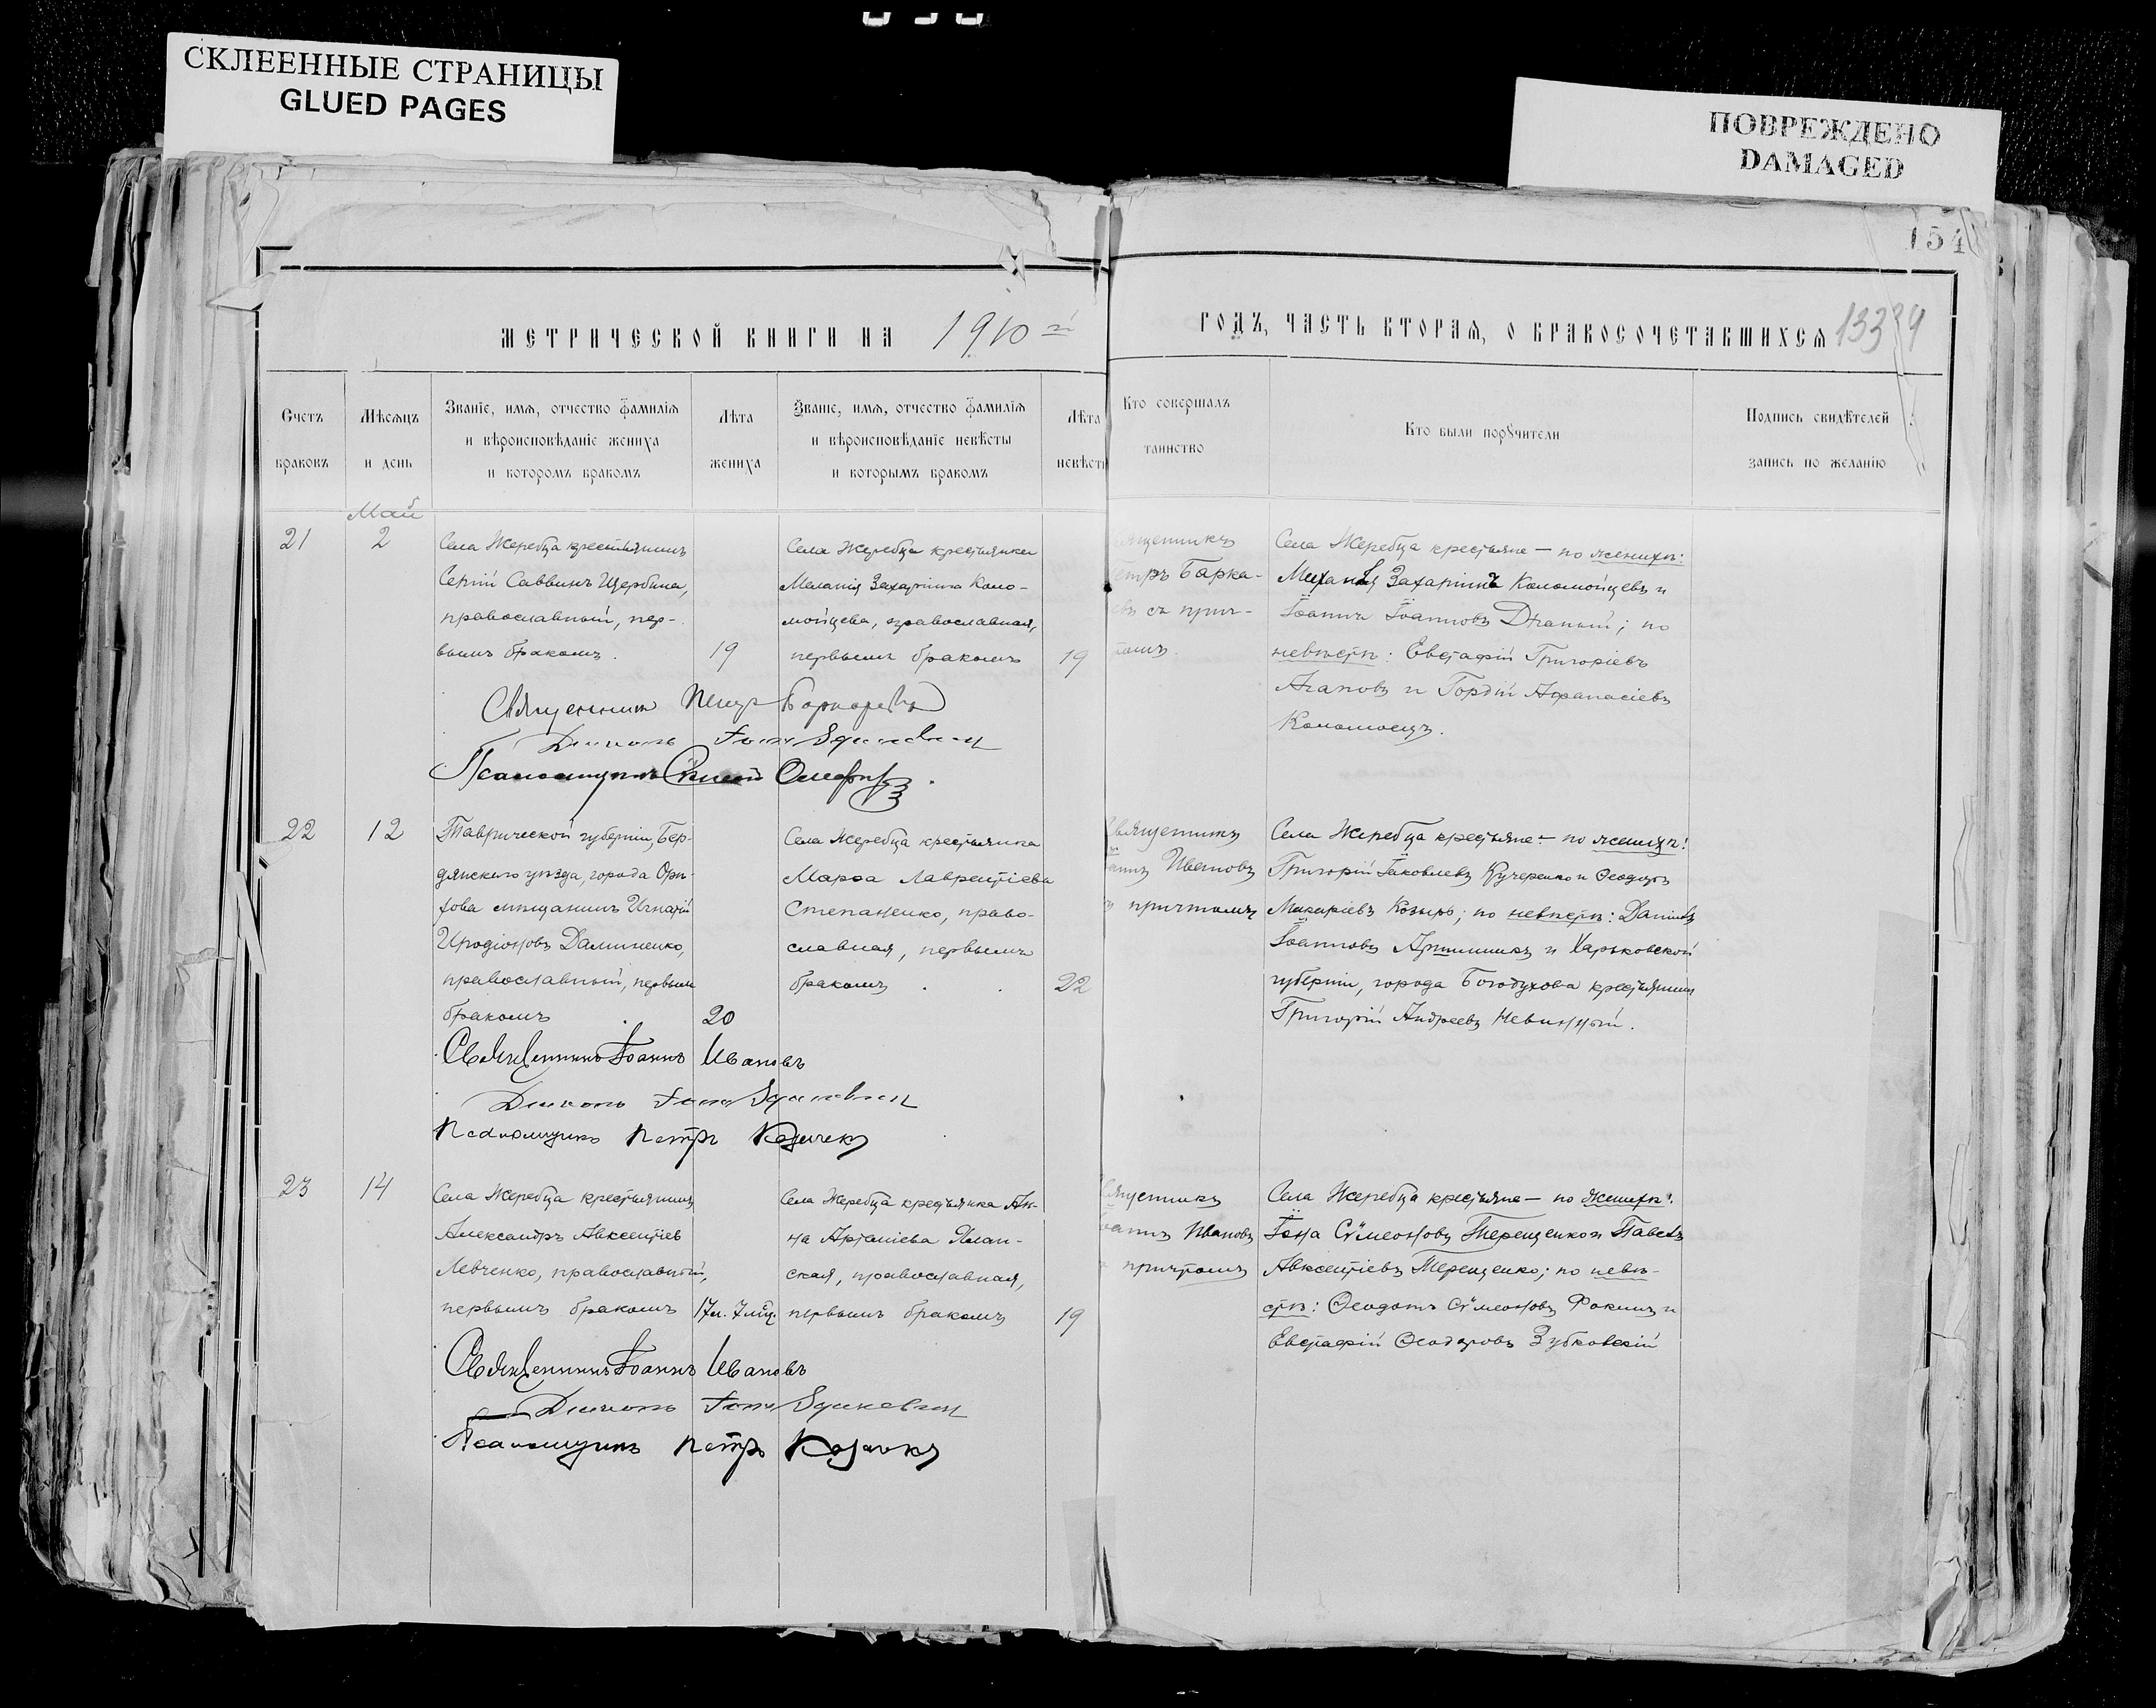 СКЛЕЕННЫЕ СТРАНИЦЫ
GLUED PAGES
ПОВРЕЖДЕНО
DAMAGED
154
МЕТРИЧЕСКОЙ КНИГИ НА 1910 й
ГОДЪ, ЧАСТЬ ВТОРАЯ, О БРАКОСОЧЕТАВШИХСЯ
Счетъ
браковъ
Мѣсяцъ
и день
Званіе, имя, отчество фамилія
и вѣроисповѣданіе жениха
и которомъ бракомъ
Лѣта
жениха
Званіе, имя, отчество фамилія
и вѣроисповѣданіе невѣсты
и которымъ бракомъ
Лѣта
невѣсты
Кто совершалъ
таинство
Кто были поручители
Подпись свидѣтелей
запись по желанію
Май
21
2
Села Жеребца крестьянинъ
Сергій Саввинъ Щербина,
православный, пер-
вымъ бракомъ.
19
Села Жеребца крестьянка
Меланія Захаріина Коло-
мойцева, православная,
первымъ бракомъ
19
Священникъ
Петръ Барка-
съ прич-
томъ.
Села Жеребца крестьяне — по женихѣ:
Захаріинъ Коломойцевъ и
Іоаннъ Іоанновъ; по
невѣстѣ: Евстафій Григоріевъ
Агаповъ и Гордій Афанасіевъ
Коломоецъ.
Священникъ Петръ
Діаконъ
Псаломщикъ
22
12
Таврической губерніи, Бер-
дянскаго уѣзда, города Орѣ-
хова мѣщанинъ Игнатій
Иродіоновъ Далиненко,
православный, первымъ
бракомъ
20
Села Жеребца крестьянка
Марѳа Лаврентіева
Степаненко, право-
славная, первымъ
бракомъ
22
Священникъ
Іоаннъ Ивановъ
съ причтомъ
Села Жеребца крестьяне — по женихѣ:
Григорій Іаковлевъ Кучеренко и Ѳеодотъ
Макаріевъ Козырь; по невѣстѣ: Даніилъ
Іоанновъ и Харьковской
губерніи, города Богодухова крестьянинъ
Григорій Андреевъ Невинный.
Священникъ Іоаннъ Ивановъ
Діаконъ
Псаломщикъ Петръ
23
14
Села Жеребца крестьянинъ
Александръ Авксентіев
Левченко, православный,
первымъ бракомъ
17 л. 7 мѣс.
Села Жеребца крестьянка Ан-
на
ская, православная,
первымъ бракомъ
19
Священникъ
Іоаннъ Ивановъ
съ причтомъ
Села Жеребца крестьяне — по женихѣ:
Іона Сѵмеоновъ Терещенко и Павелъ
Авксентіевъ Терещенко; по невѣ-
стѣ: Ѳеодотъ Сѵмеоновъ Фокинъ и
Евстафій Ѳеодоровъ Зубковскій
Священникъ Іоаннъ Ивановъ
Діаконъ
Псаломщикъ Петръ